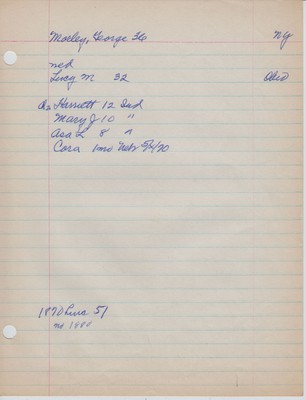 Morley, George 36 NY
med
Lucy M 32 Ohio
da Harriett 12 Ind
Mary J 10 "
Asa L 8 "
Cora 1mo Neb 5/70
1870 Linc 51
no 1880